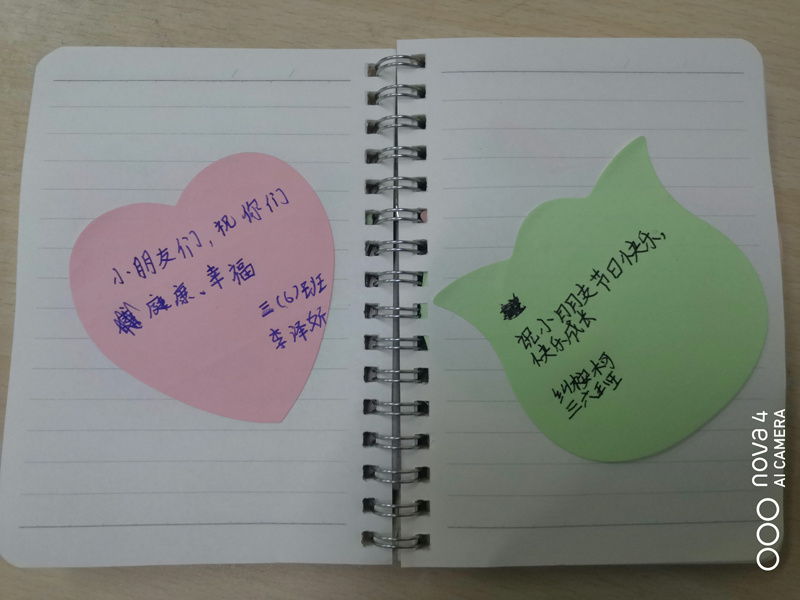 小朋友们，祝你们
健康、幸福
三（6）班
李泽妡
祝小朋友节日快乐，
快乐成长
三六班
nova 4
AI CAMERA